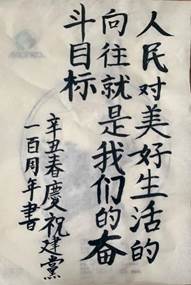 人民对美好生活的
向往就是我们的奋
斗目标
辛丑春慶祝建黨
一百周年書